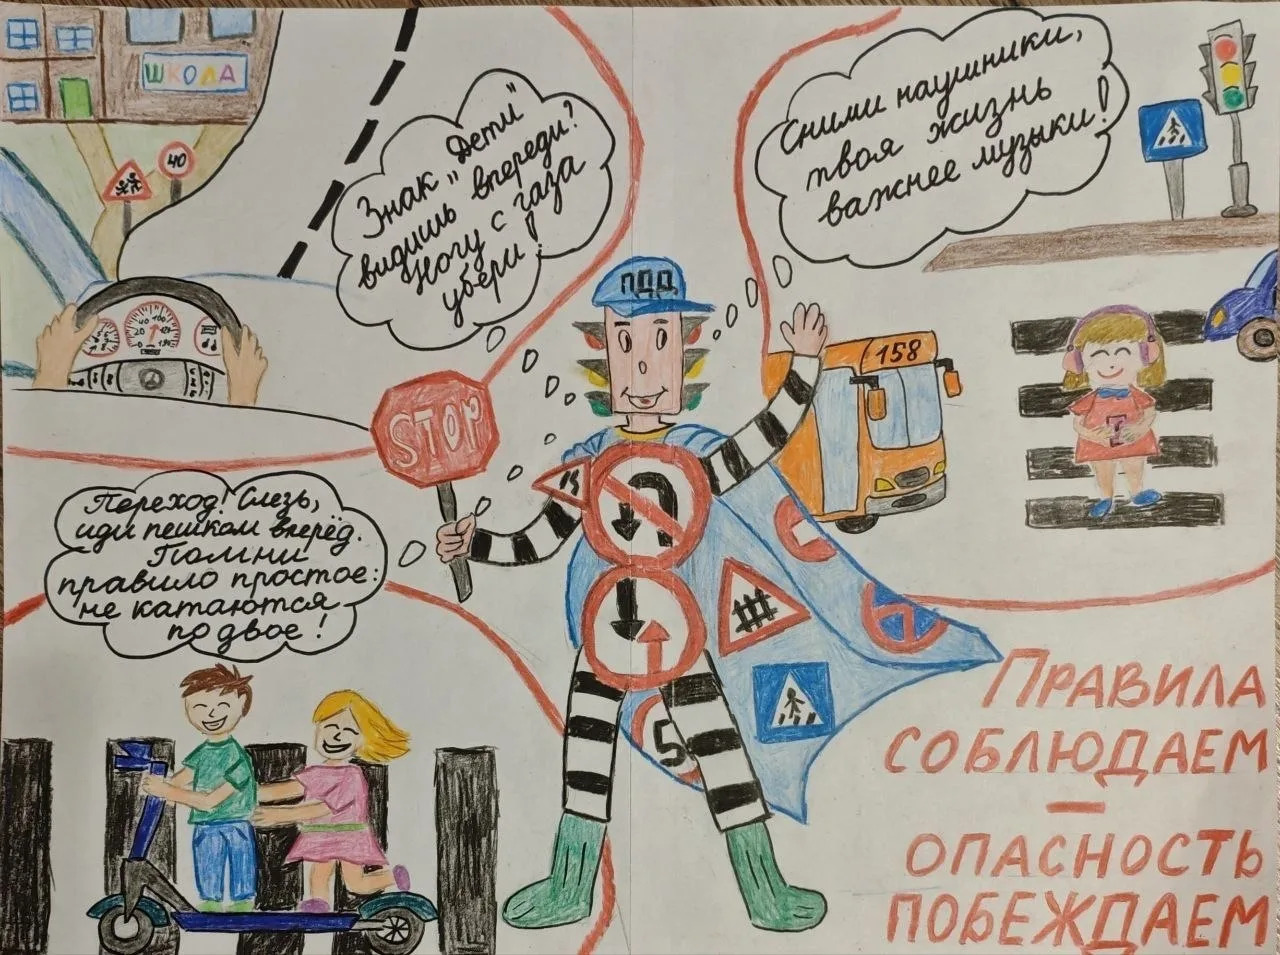 ШКОЛА
40
Знак "Дети"
видишь впереди?
Ногу с газа
убери!
Сними наушники,
твоя жизнь
важнее музыки!
ПДД
158
STOP
Переход! Слезь,
иди пешком вперёд.
Помни
правило простое:
не катаются
по двое!
5
ПРАВИЛА
СОБЛЮДАЕМ
—
ОПАСНОСТЬ
ПОБЕЖДАЕМ